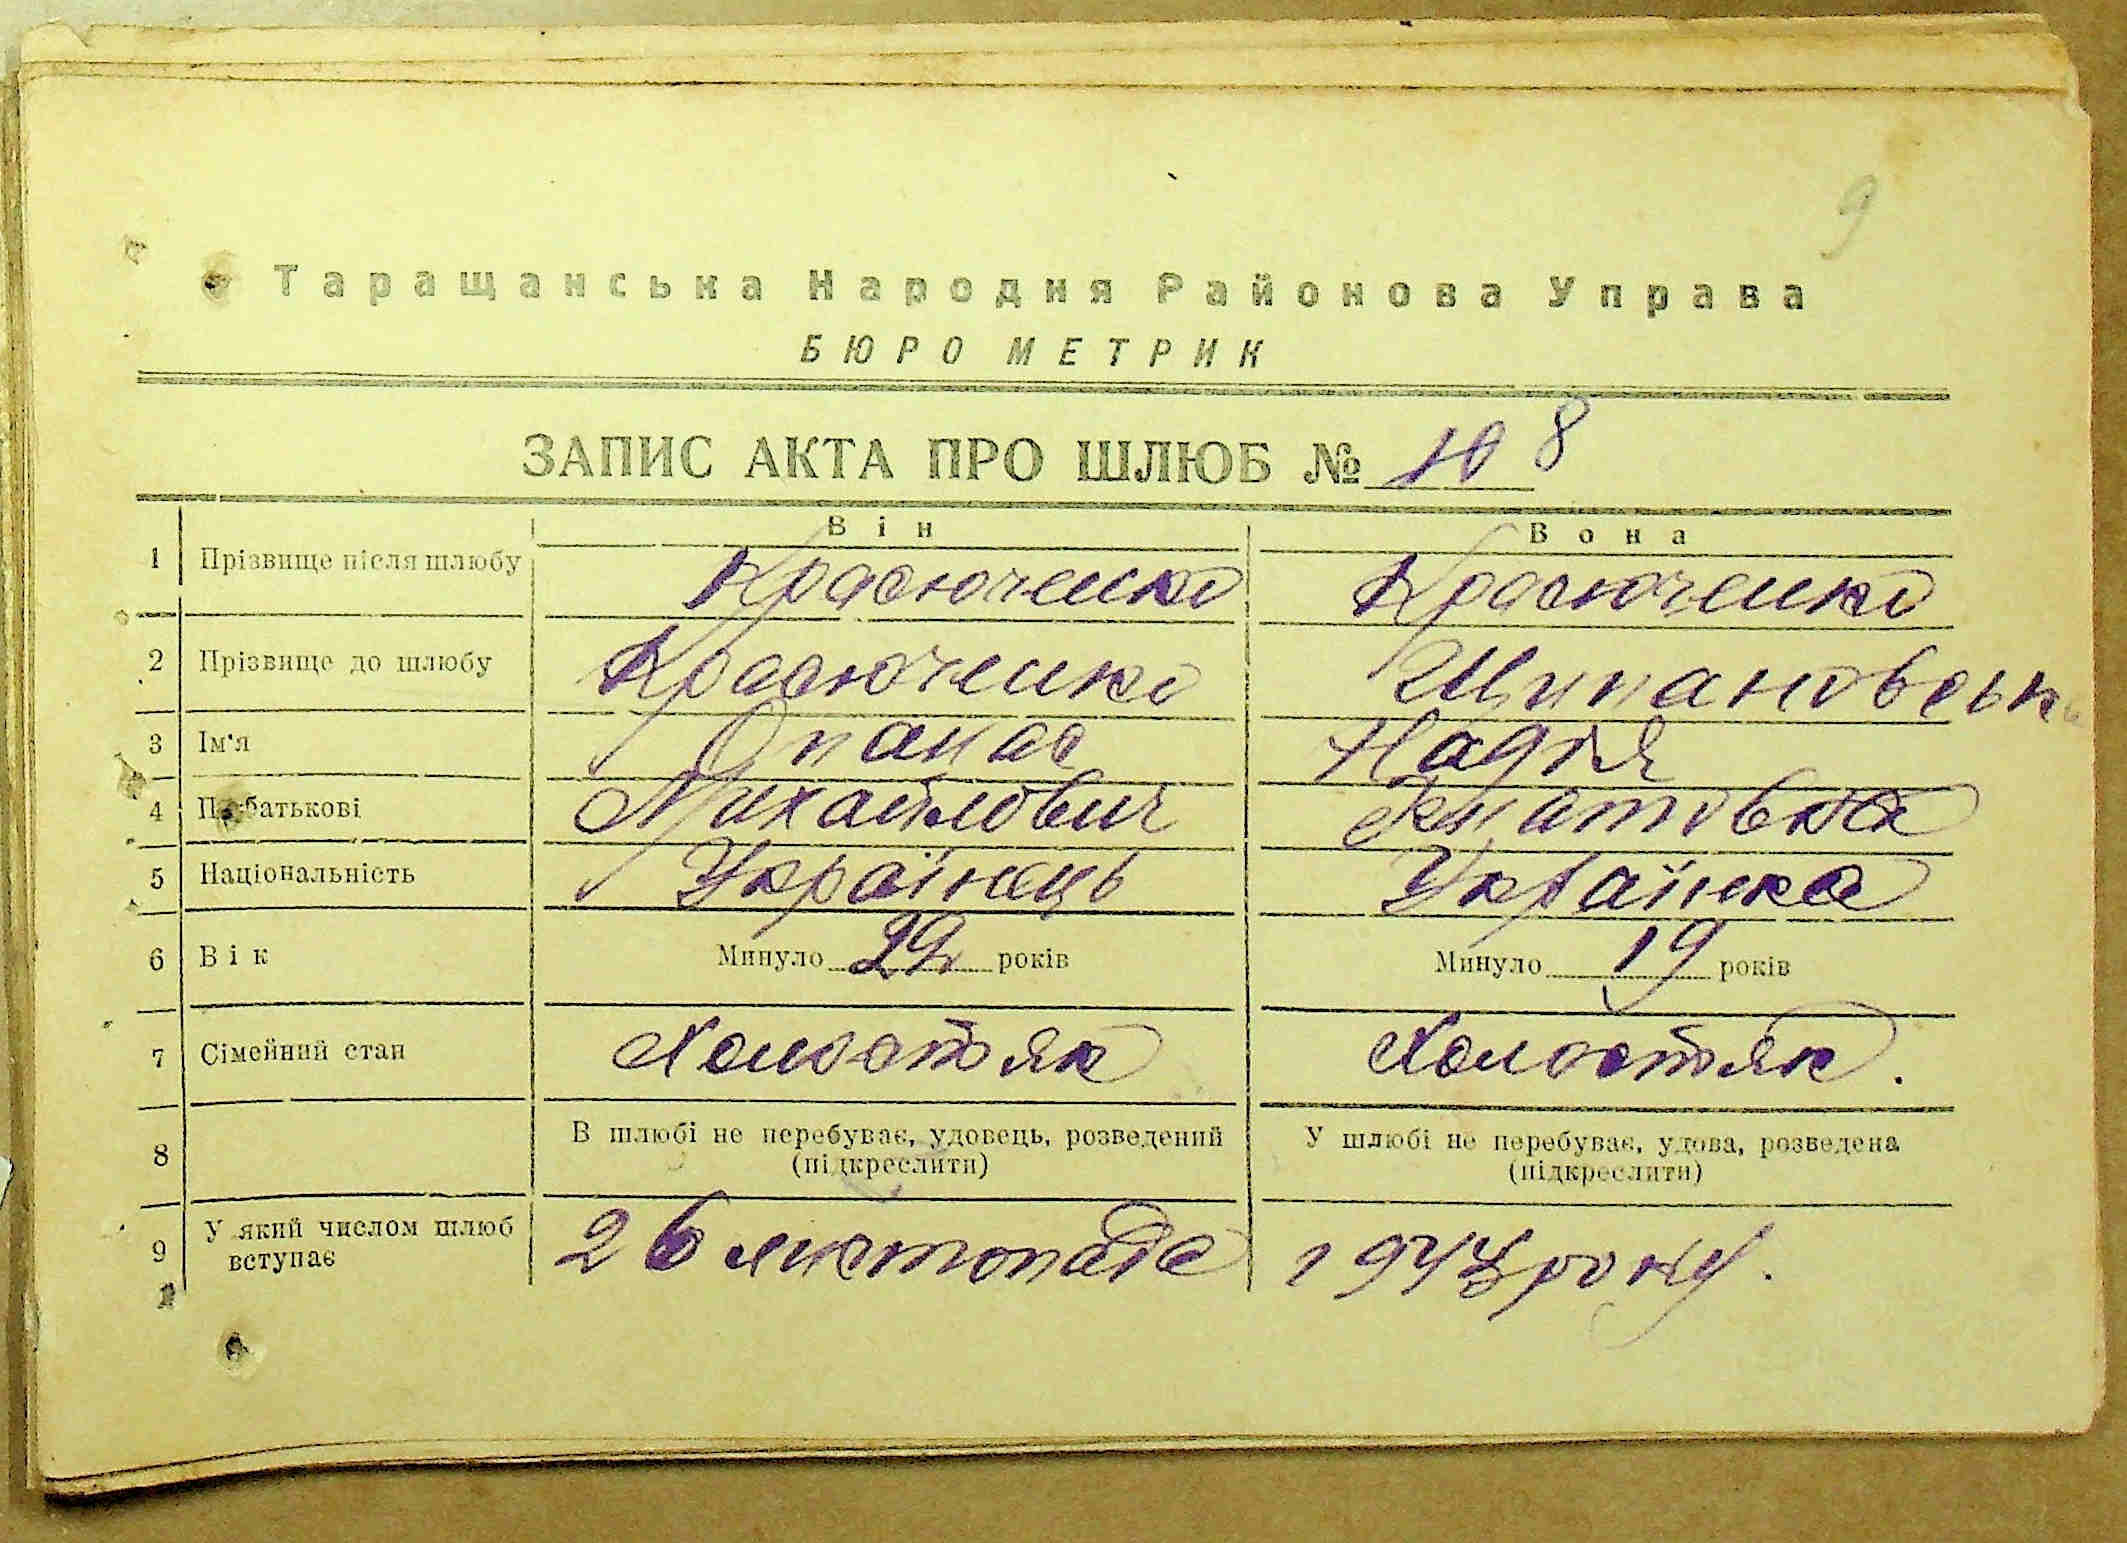 9
Таращанська Народня Районова Управа
БЮРО МЕТРИК
ЗАПИС АКТА ПРО ШЛЮБ № 10 8
Він Вона
1 Прізвище після шлюбу Красюченко Красюченко
2 Прізвище до шлюбу Красюченко Щипановськ
3 Ім'я Опанас Надія
4 По батькові Михайлович Гнатовна
5 Національність Українець Українка
6 Вік Минуло 22 років Минуло 19 років
7 Сімейний стан Холостяк Холостяк.
8 В шлюбі не перебуває, удовець, розведений У шлюбі не перебуває, удова, розведена
(підкреслити) (підкреслити)
9 У який числом шлюб вступає 26 листопада 1943 року.